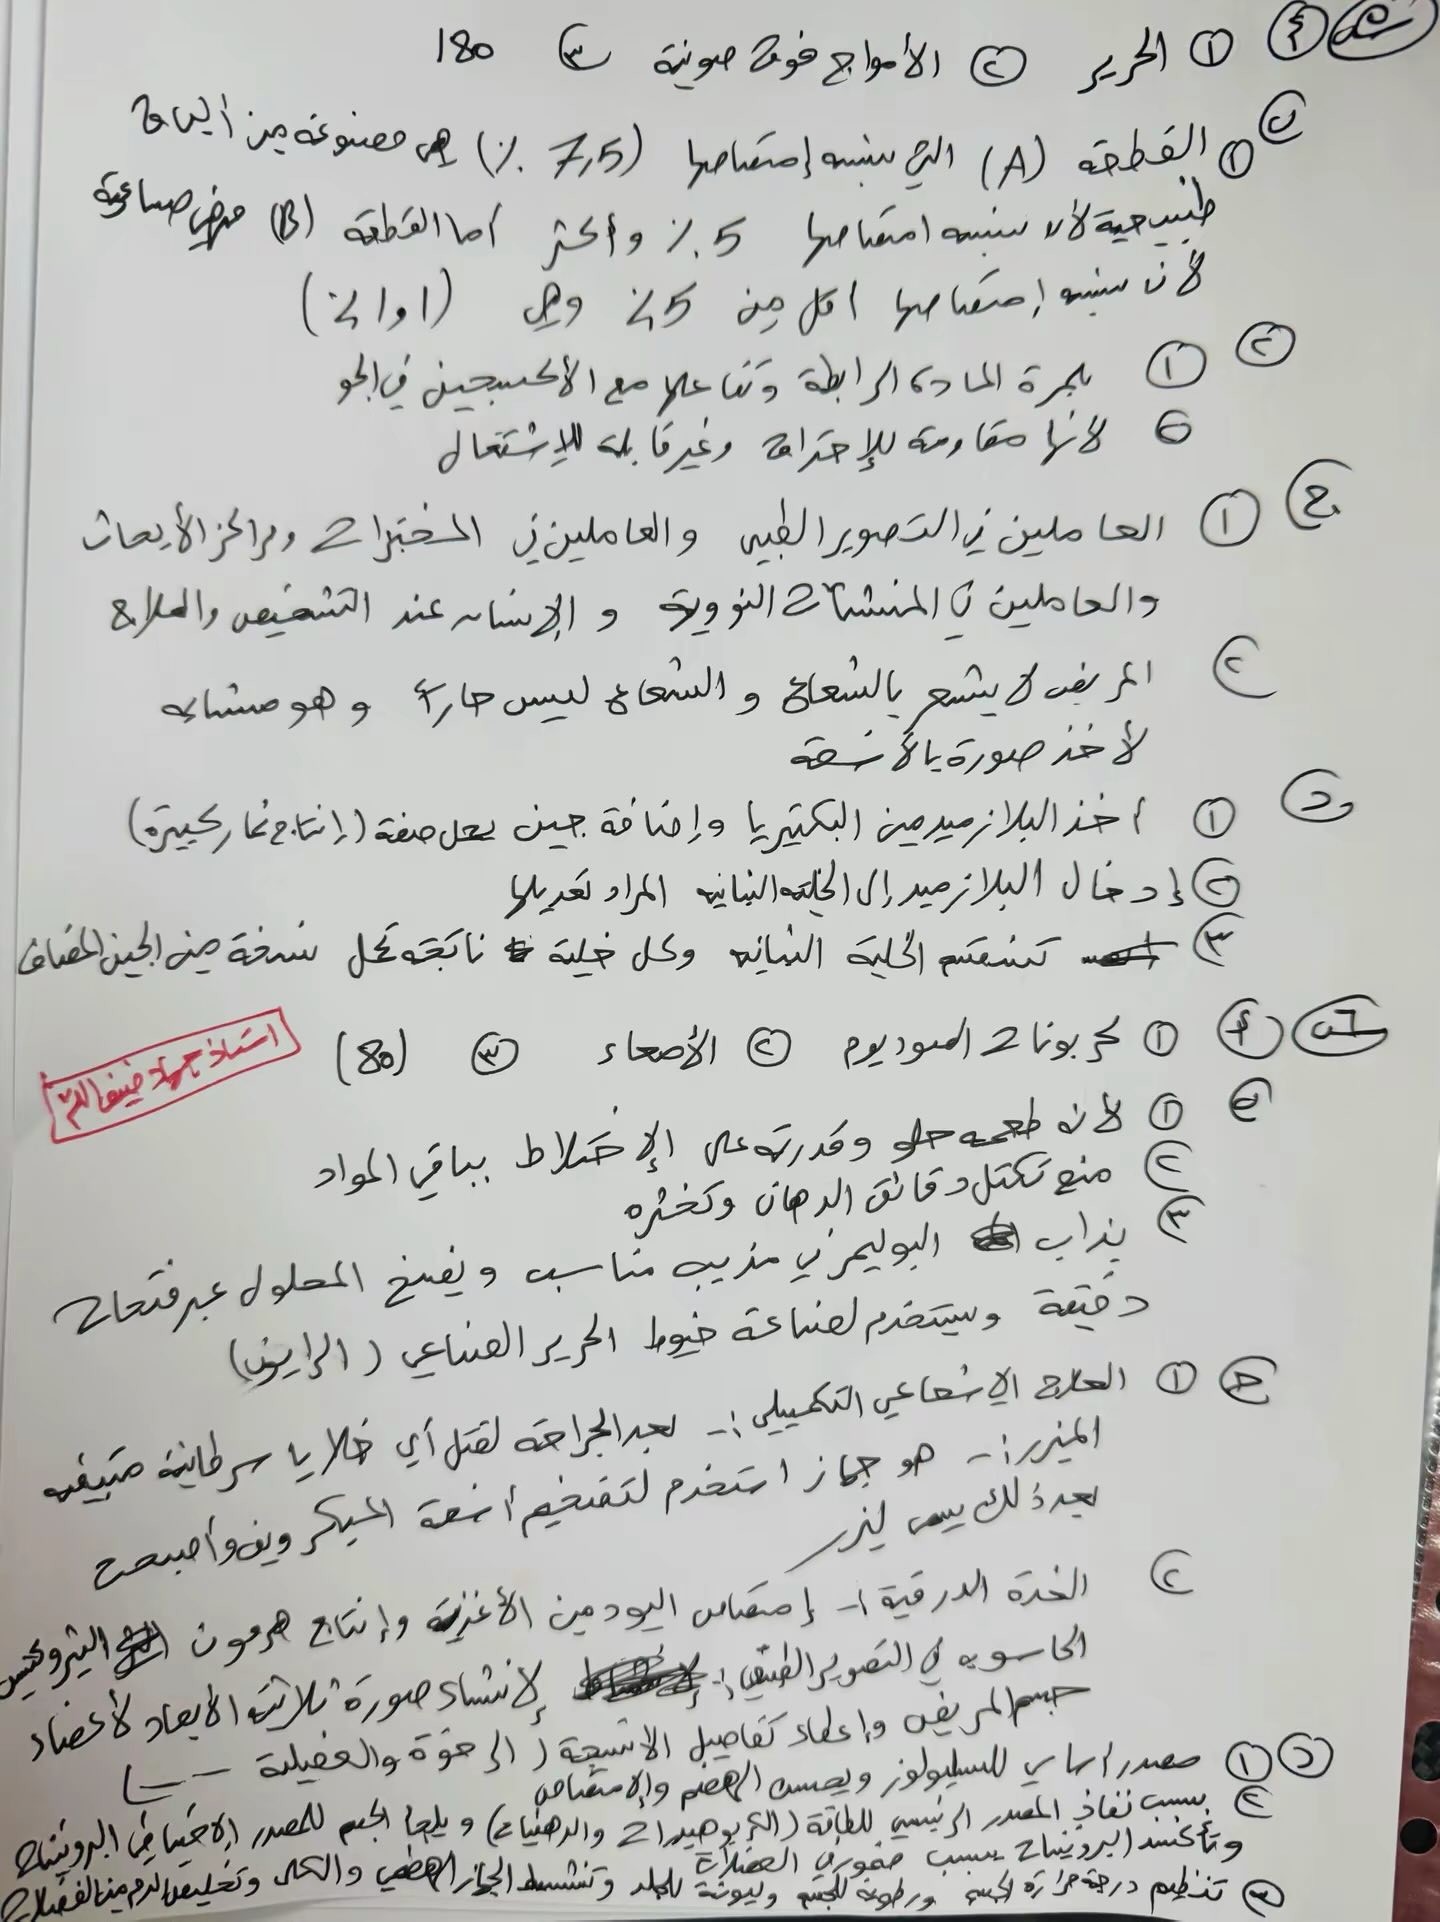 س٥ أ ١ الحرير ٢ الأمواج فوق صوتية ٣ 180
ب ١ القطعة (A) التي نسبة إمتصاصها (7,5 %) هي مصنوعة من ألياف
طبيعية لأن نسبة امتصاصها 5 % وأكثر أما القطعة (B) فهي صناعية
لأن نسبة إمتصاصها أقل من 5 % وهي (١ و ١ %)
٢ ١ بلمرة المادة الرابطة وتفاعلها مع الأكسجين في الجو
٢ لأنها مقاومة للإحتراق وغير قابلة للإشتعال
ج ١ العاملين في التصوير الطبي والعاملين في المختبرات ومراكز الأبحاث
والعاملين في المنشآت النووية و الإنسان عند التشخيص والعلاج
٢ المريض لا يشعر بالشعاع و الشعاع ليس حاراً و هو مشابه
لأخذ صورة بالأشعة
د ١ أخذ البلازميد من البكتيريا وإضافة جين يحمل صفة (إنتاج ثمار كبيرة)
٢ إدخال البلازميد إلى الخلية النباتية المراد تعديلها
٣ تنقسم الخلية النباتية وكل خلية ناتجة تحمل نسخة من الجين المضاف
س٦ أ ١ كربونات الصوديوم ٢ الأمعاء ٣ (80)
استاذ جهاد ضيف الله
ب ١ لأنه طعمه حلو وقدرته على الإختلاط بباقي المواد
٢ منع تكتل دقائق الدهان وتخثره
٣ يذاب البوليمر في مذيب مناسب و يضخ المحلول عبر فتحات
دقيقة ويستخدم لصناعة خيوط الحرير الصناعي (الرايون)
ج ١ العلاج الإشعاعي التكميلي :- بعد الجراحة لقتل أي خلايا سرطانية متبقية
الميزر :- هو جهاز استخدم لتضخيم أشعة الميكروويف وأصبح
بعد ذلك يسمى ليزر
٢ الغدة الدرقية :- إمتصاص اليود من الأغذية وإنتاج هرمون الثيروكسين
الحاسوب في التصوير الطبقي :- لإنشاء صورة ثلاثية الأبعاد لأعضاء
جسم المريض وإعطاء تفاصيل الأنسجة (الرخوة والعضلية - - -)
د ١ مصدر أساسي للسيليولوز ويحسن الهضم والإمتصاص
٢ بسبب نفاذ المصدر الرئيسي للطاقة (الكربوهيدرات والدهنيات) و يلجأ الجسم للمصدر الإحتياطي البروتينات
وتأكسد البروتينات يسبب ضمور في العضلات
٣ تنظيم درجة حرارة الجسم ورطوبة للجسم وليونة للجلد وتنشيط الجهاز الهضمي والكلى وتخليص الدم من الفضلات